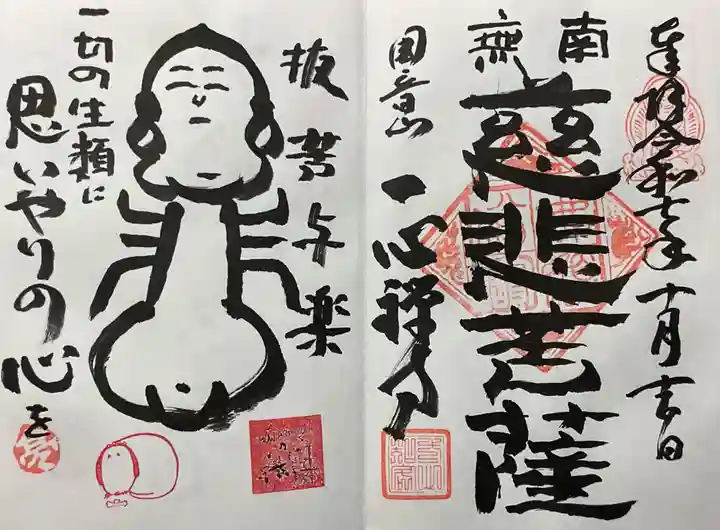 奉拝令和七年十月吉日
南無
慈悲菩薩
圓通山
一心禅寺
抜苦与楽
一切の生類に
思いやりの心を